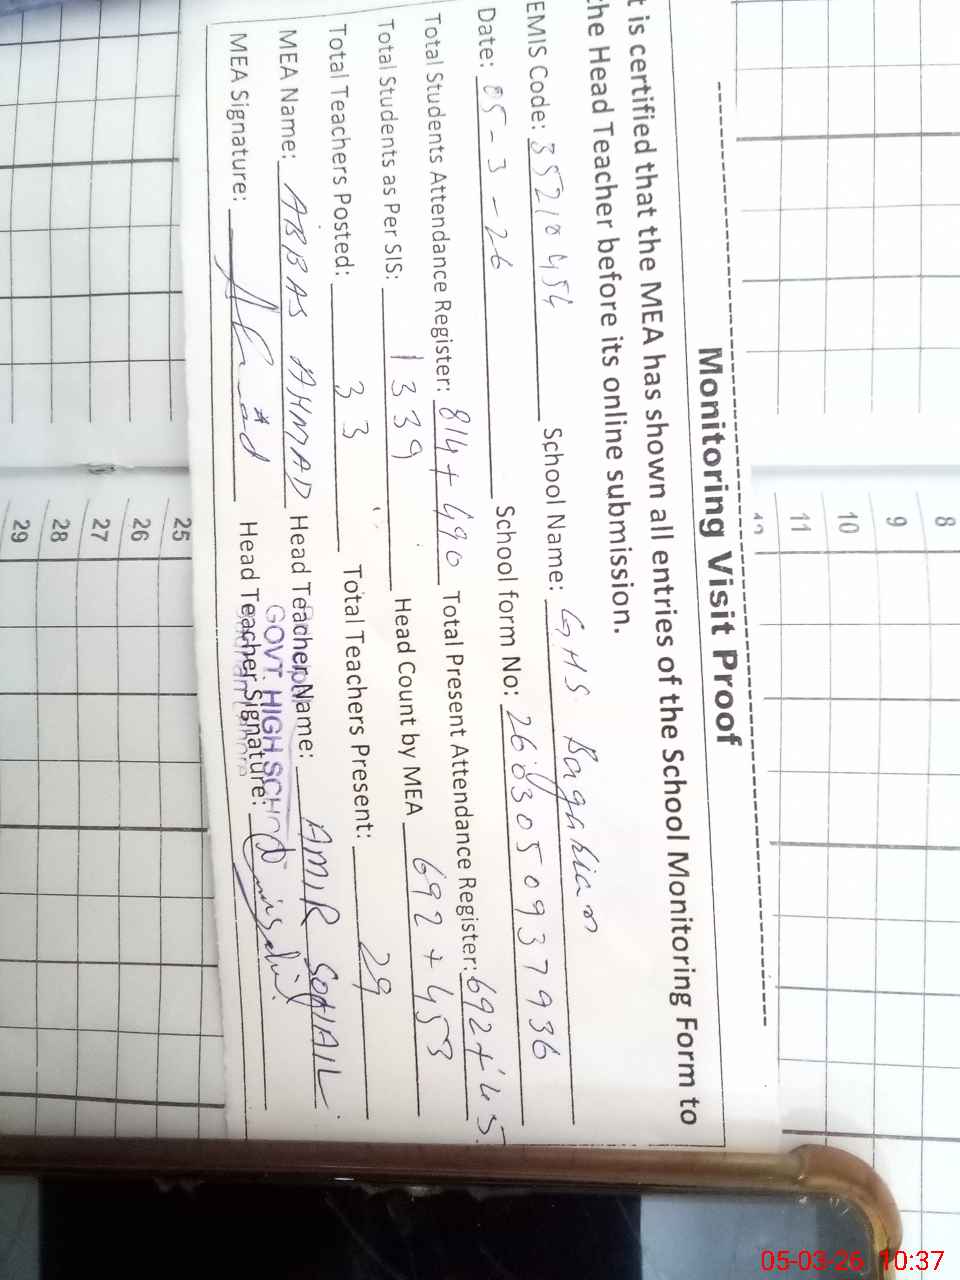 Monitoring Visit Proof
t is certified that the MEA has shown all entries of the School Monitoring Form to
he Head Teacher before its online submission.
EMIS Code: 35210454 School Name: GHS Bagarian
Date: 05-3-26 School form No: 2603050937936
Total Students Attendance Register: 814+490 Total Present Attendance Register: 692+45
Total Students as Per SIS: 1339 Head Count by MEA 692+453
Total Teachers Posted: 33 Total Teachers Present: 29
MEA Name: ABBAS AHMAD Head Teacher Name: AMIR SOHAIL
MEA Signature: Head Teacher Signature:
GOVT. HIGH SCHO
8
9
10
11
25
26
27
28
29
05-03-26 10:37